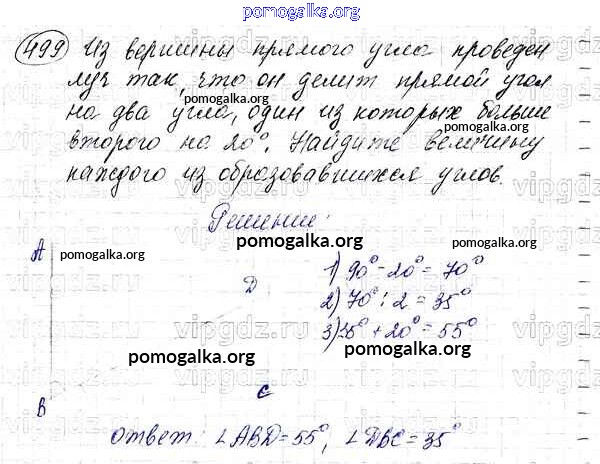 pomogalka.org
499 Из вершины прямого угла проведен
луч так, что он делит прямой угол
на два угла, один из которых больше
второго на 20°. Найдите величину
каждого из образовавшихся углов.
Решение:
A
D
B
C
1) 90° - 20° = 70°
2) 70° : 2 = 35°
3) 35° + 20° = 55°
ответ: ∠ABD = 55°, ∠DBC = 35°
pomogalka.org
pomogalka.org
pomogalka.org
pomogalka.org
pomogalka.org
pomogalka.org
pomogalka.org
vipgdz.ru